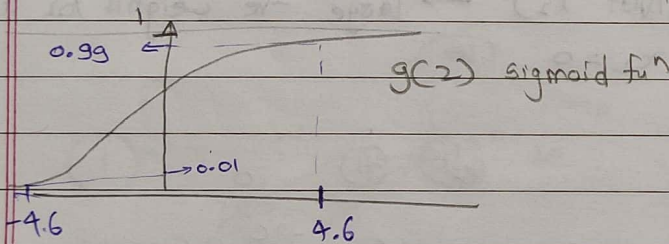 1
0.99
g(z) sigmoid fuⁿ
0.01
-4.6
4.6